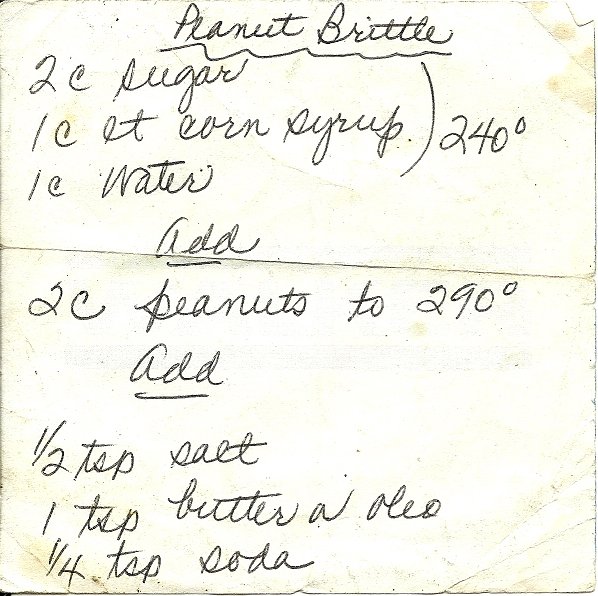 Peanut Brittle
2 c sugar
1 c lt corn syrup ) 240°
1 c Water
Add
2 c peanuts to 290°
Add
1/2 tsp salt
1 tsp butter or oleo
1/4 tsp soda